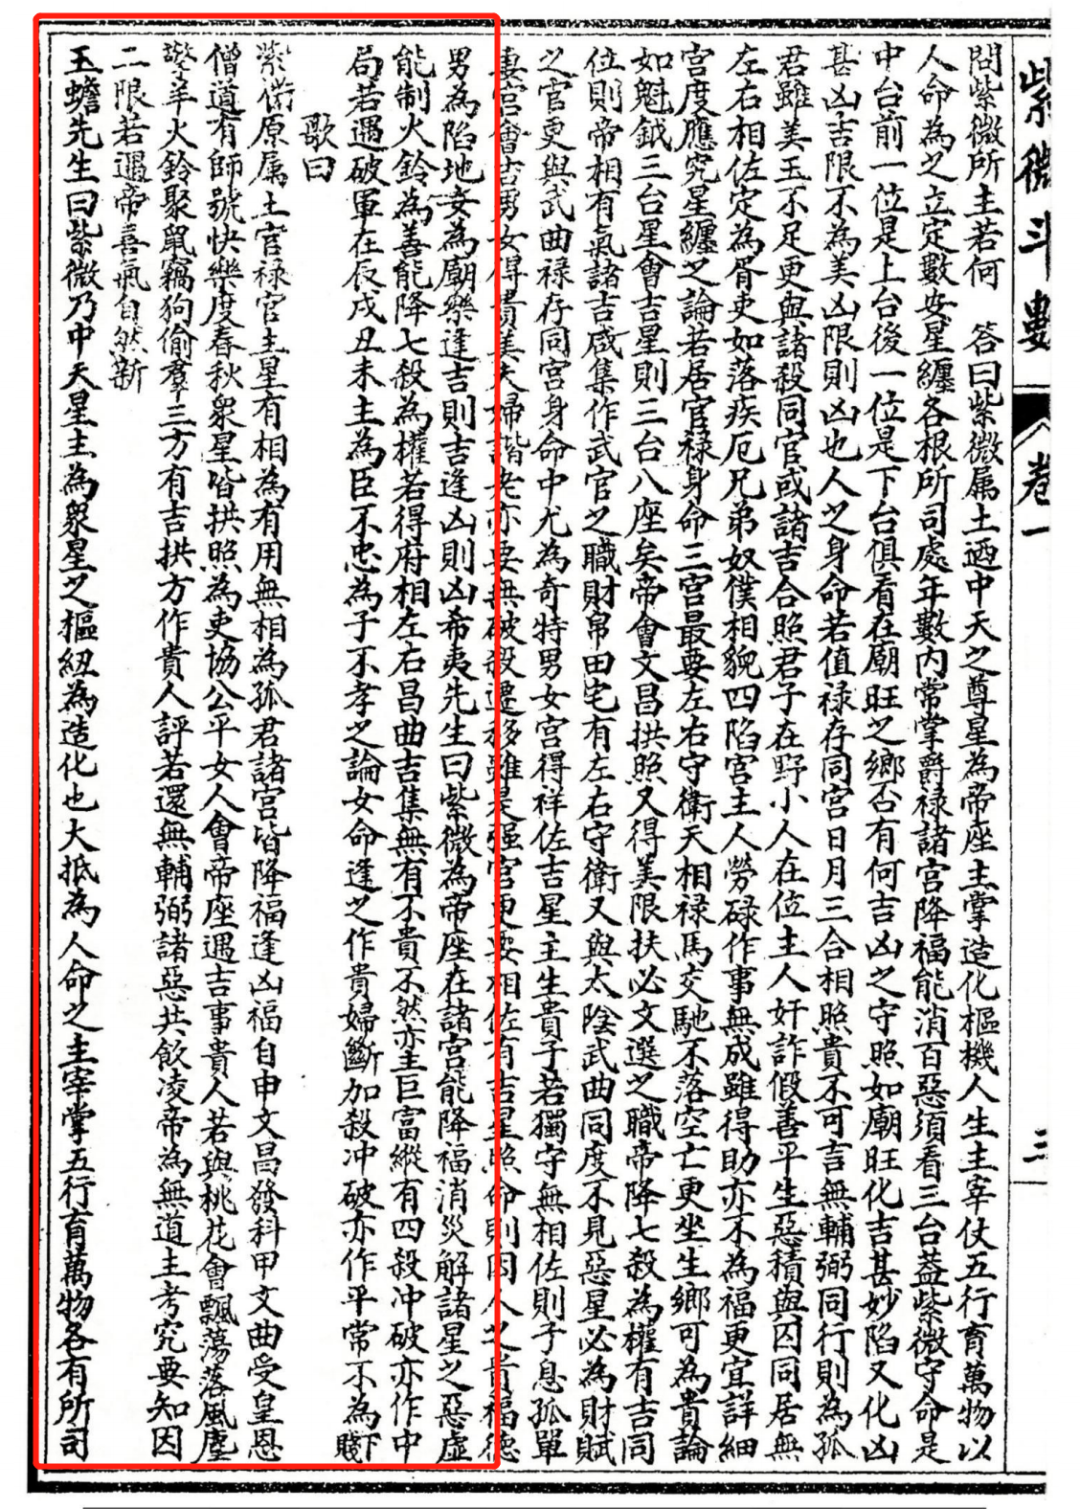 紫微斗數
卷一
三
問紫微所主若何　答曰紫微属土迺中天之尊星為帝座主掌造化樞機人生主宰仗五行育萬物以
人命為之立定數安星纏各根所司處年數內常掌爵禄諸宮降福能消百惡須看三台蓋紫微守命是
中台前一位是上台後一位是下台俱看在廟旺之鄉否有何吉凶之守照如廟旺化吉甚妙陷又化凶
甚凶吉限不為美凶限則凶也人之身命若值禄存同宮日月三合相照貴不可言無輔弼同行則為孤
君雖美玉不足更與諸殺同官或諸吉合照君子在野小人在位主人奸詐假善平生惡積與囚同居無
左右相佐定為胥吏如落疾厄兄弟奴僕相貌四陷宮主人勞碌作事無成雖得助亦不為福更宜詳細
宮度應究星纏之論若居官禄身命三宮最要左右守衛天相禄馬交馳不落空亡更坐生鄉可為貴論
如魁鉞三台星會吉星則三台八座矣帝會文昌拱照又得美限扶必文選之職帝降七殺為權有吉同
位則帝相有氣諸吉咸集作武官之職財帛田宅有左右守衛又與太陰武曲同度不見惡星必為財賦
之官更與武曲禄存同宮身命中尤為奇特男女宮得祥佐吉星主生貴子若獨守無相佐則子息孤單
妻宮會吉男女得貴美夫婦諧老亦要無破殺遷移雖是强宮更要相佐有吉星照命則因人之貴福德
男為陷地女為廟樂逢吉則吉逢凶則凶希夷先生曰紫微為帝座在諸宮能降福消災解諸星之惡虛
能制火鈴為善能降七殺為權若得府相左右昌曲吉集無有不貴不然亦主巨富縱有四殺冲破亦作中
局若遇破軍在辰戌丑未主為臣不忠為子不孝之論女命逢之作貴婦斷加殺冲破亦作平常不為下賤
歌曰
紫微原属土官禄宮主星有相為有用無相為孤君諸宮皆降福逢凶福自申文昌發科甲文曲受皇恩
僧道有師號快樂度春秋衆星皆拱照為吏協公平女人會帝座遇吉事貴人若與桃花會飄蕩落風塵
擎羊火鈴聚鼠竊狗偷羣三方有吉拱方作貴人評若還無輔弼諸惡共飲凌帝為無道主考究要知因
二限若遇帝喜氣自然新
玉蟾先生曰紫微乃中天星主為衆星之樞紐為造化也大抵為人命之主宰掌五行育萬物各有所司